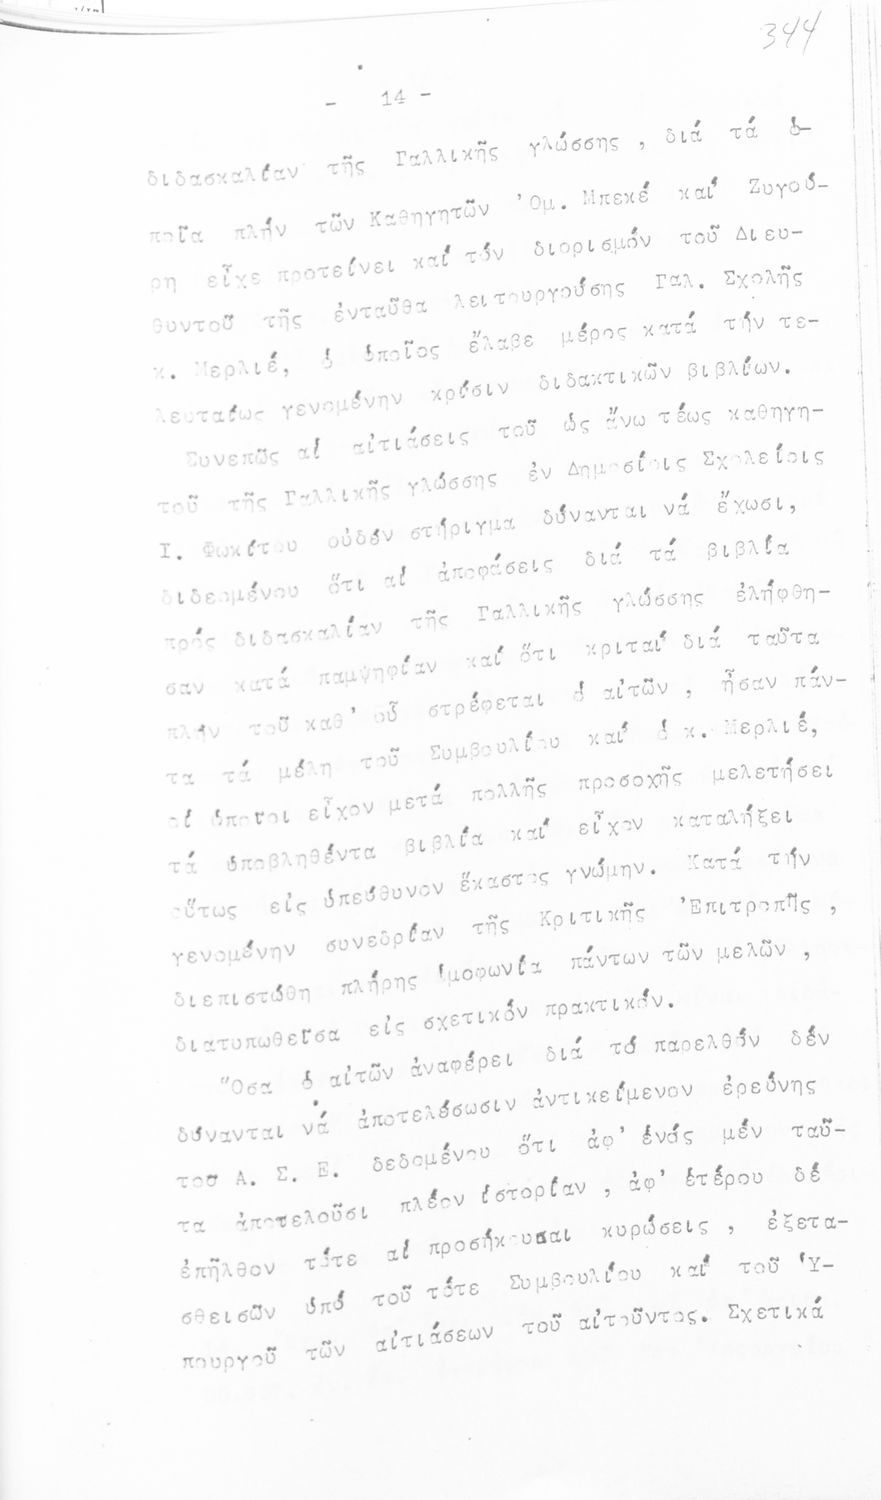 344
- 14 -
διδασκαλίαν τῆς Γαλλικῆς γλώσσης, διά τά ὁ-
ποῖα πλήν τῶν Καθηγητῶν Ὁμ. Μπεκέ καί Ζυγού-
ρη εἶχε προτείνει καί τόν διορισμόν τοῦ Διευ-
θυντοῦ τῆς ἐνταῦθα λειτουργούσης Γαλ. Σχολῆς
κ. Μερλιέ, ὁ ὁποῖος ἔλαβε μέρος κατά τήν τε-
λευταίως γενομένην κρίσιν διδακτικῶν βιβλίων.
Συνεπῶς αἱ αἰτιάσεις τοῦ ὡς ἄνω τέως καθηγη-
τοῦ τῆς Γαλλικῆς γλώσσης ἐν Δημοσίοις Σχολείοις
Ι. Φωκίτου οὐδέν στήριγμα δύνανται νά ἔχωσι,
διδεομένου ὅτι αἱ ἀποφάσεις διά τά βιβλία
πρός διδασκαλίαν τῆς Γαλλικῆς γλώσσης ἐλήφθη-
σαν κατά παμψηφίαν καί ὅτι κριταί διά ταῦτα
πλήν τοῦ καθ' οὗ στρέφεται ὁ αἰτῶν, ἦσαν πάν-
τα τά μέλη τοῦ Συμβουλίου καί ὁ κ. Μερλιέ,
οἱ ὁποῖοι εἶχον μετά πολλῆς προσοχῆς μελετήσει
τά ὑποβληθέντα βιβλία καί εἶχον καταλήξει
οὕτως εἰς ὑπεύθυνον ἕκαστος γνώμην. Κατά τήν
γενομένην συνεδρίαν τῆς Κριτικῆς Ἐπιτροπῆς,
διεπιστώθη πλήρης ὁμοφωνία πάντων τῶν μελῶν,
διατυπωθεῖσα εἰς σχετικόν πρακτικόν.
Ὅσα ὁ αἰτῶν ἀναφέρει διά τό παρελθόν δέν
δύνανται νά ἀποτελέσωσιν ἀντικείμενον ἐρεύνης
τοῦ Α. Σ. Ε. δεδομένου ὅτι ἀφ' ἑνός μέν ταῦ-
τα ἀποτελοῦσι πλέον ἱστορίαν, ἀφ' ἑτέρου δέ
ἐπῆλθον τότε αἱ προσήκουσαι κυρώσεις, ἐξετα-
σθεισῶν ὑπό τοῦ τότε Συμβουλίου καί τοῦ Ὑ-
πουργοῦ τῶν αἰτιάσεων τοῦ αἰτοῦντος. Σχετικά